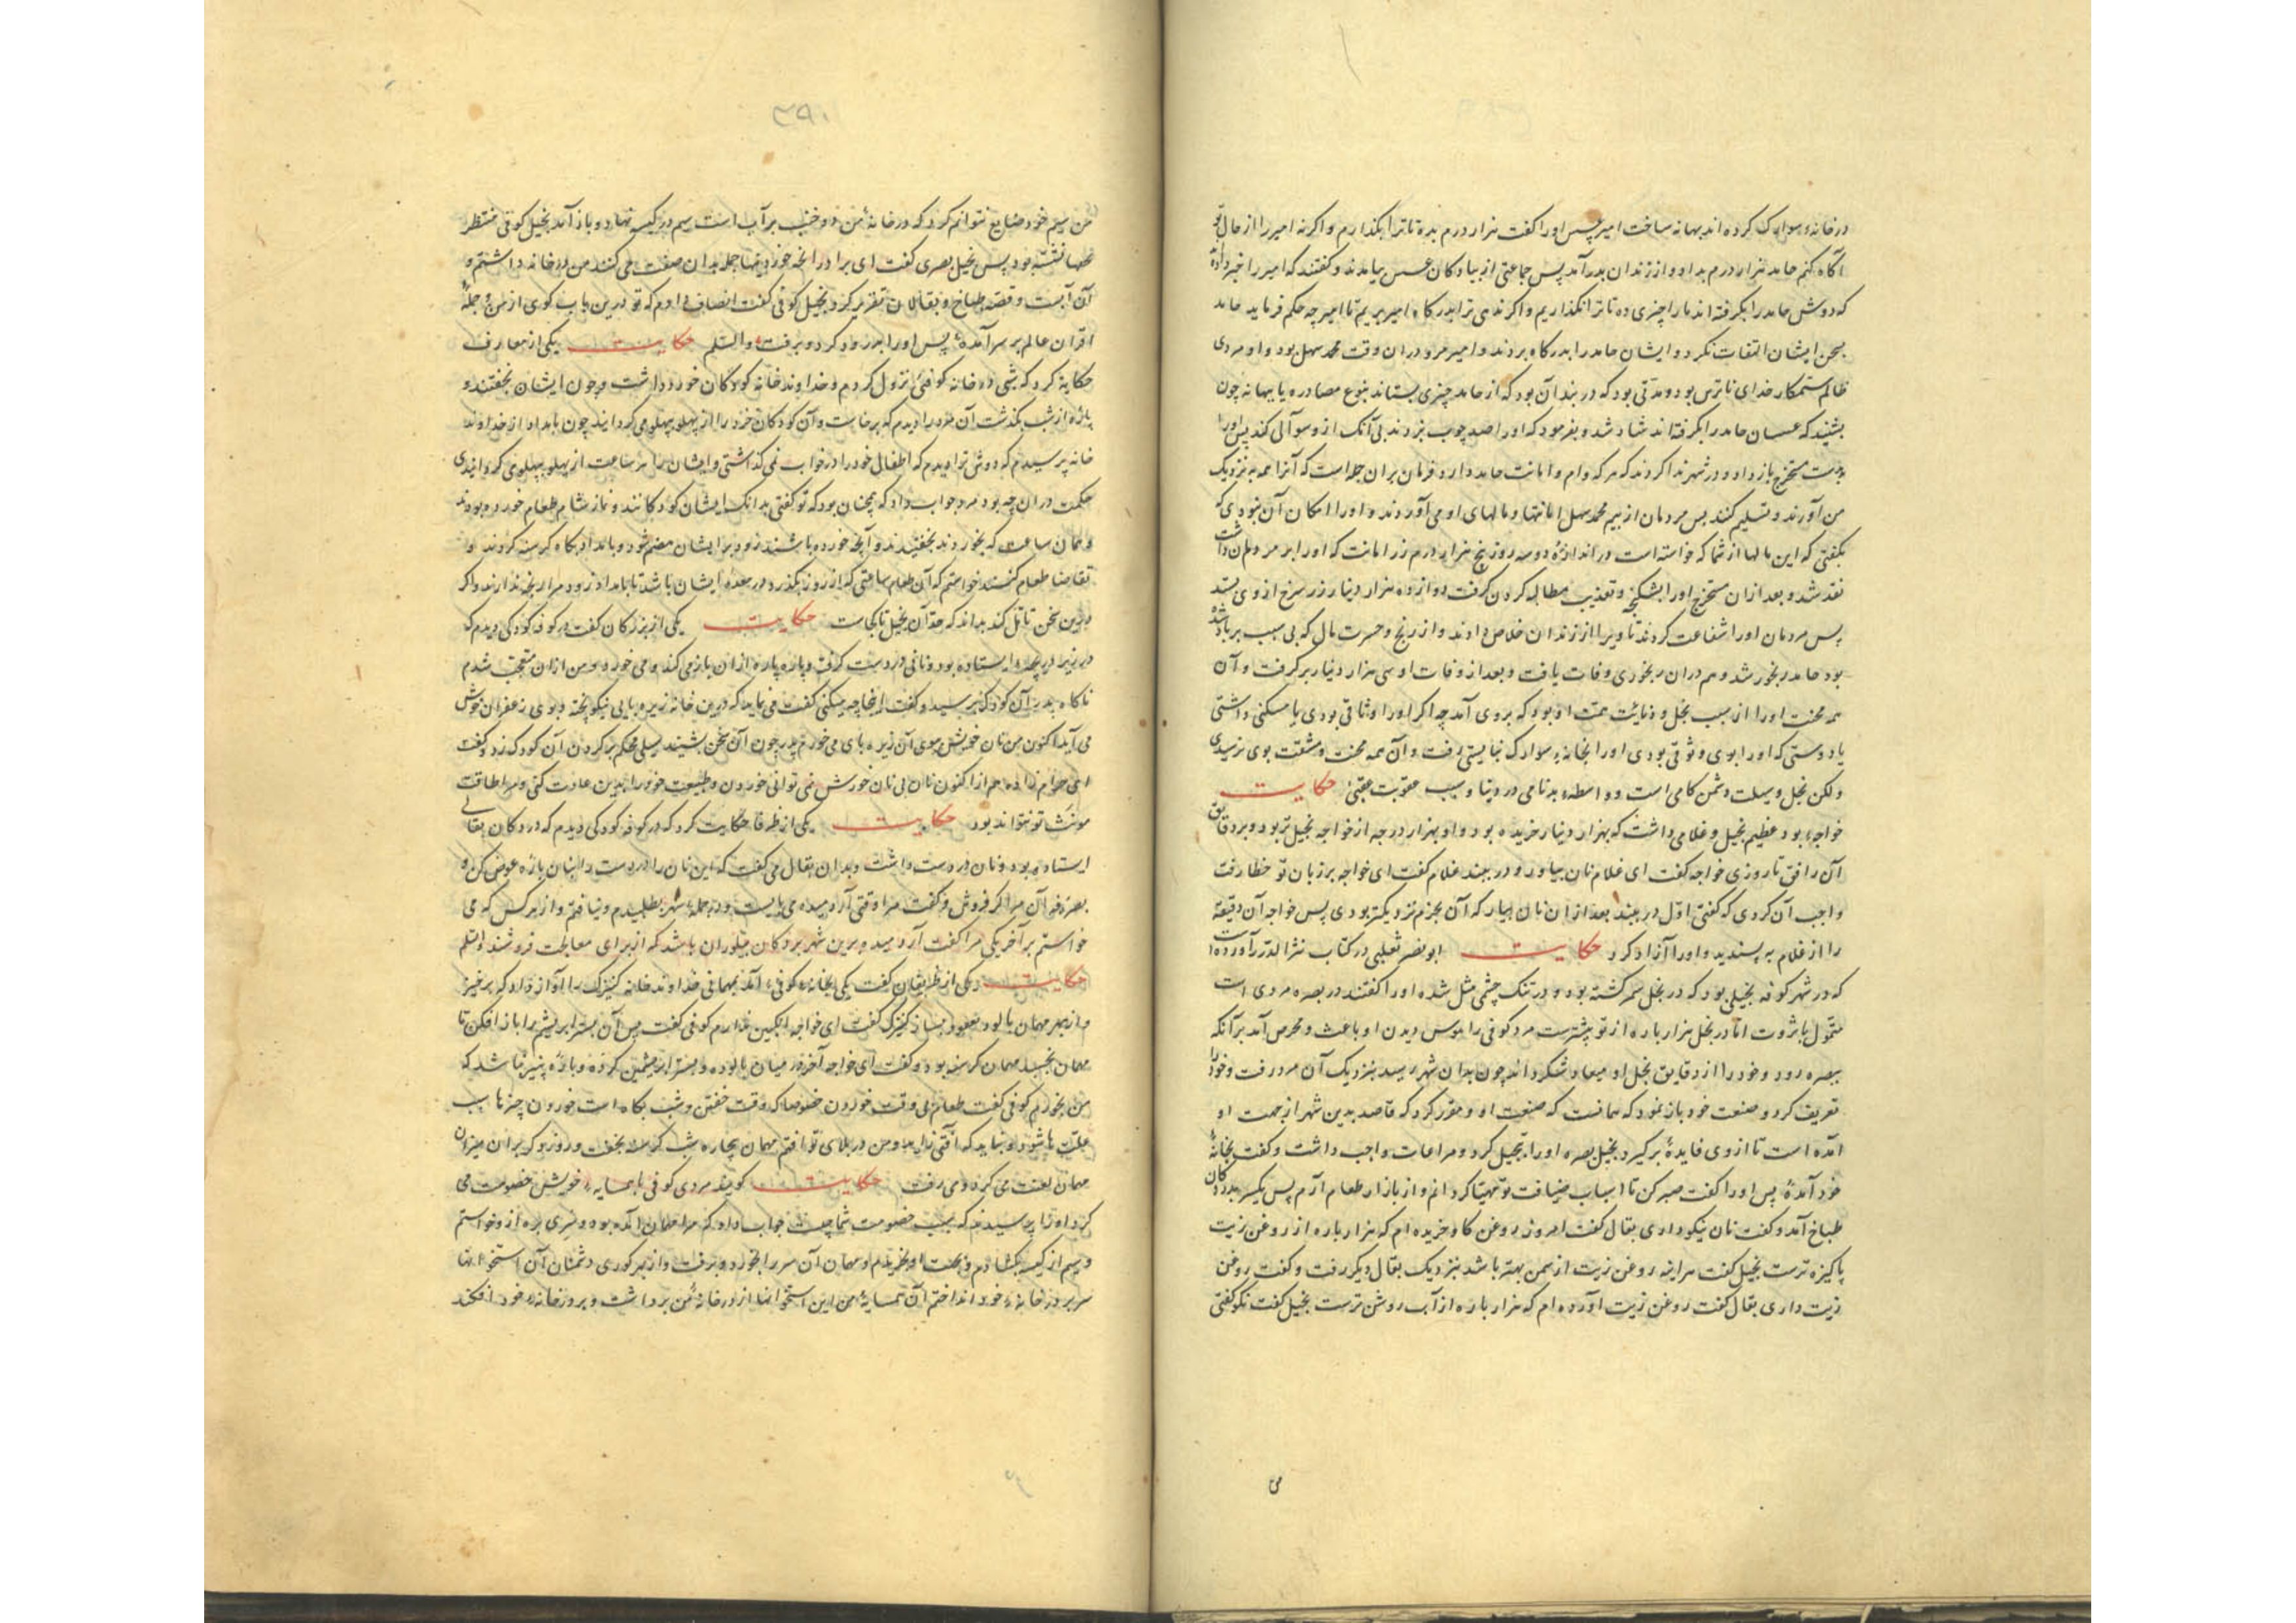 در خانهٔ سوادک کرده‌اند بهانه ساخت امیر عسس اورا کفت هزار درم بده تا ترا بکذارم واکرنه امیر را از حال تو
آکاه کنم حامد هزار درم بداد و از زندان بدر آمد پس جماعتی از پیادکان عسس بیامدند و کفتند که امیر را خبر داده
که دوش حامد را بکرفته‌اند مارا چیزی ده تا ترا بکذاریم واکرنه ترا بدرکاه امیر بریم تا امیر چه حکم فرماید حامد
بسخن ایشان التفات نکرد و ایشان حامد را بدرکاه بردند و امیر مرو دران وقت محمد سهل بود و او مردی
ظالم ستمکار خدای ناترس بود و مدتی بود که در بند آن بود که از حامد چیزی بستاند بنوع مصادره یا بهانه چون
بشنید که عسسان حامد را بکرفته‌اند شاد شد و بفرمود که اورا صد چوب بزدند بی آنک ازو سوالی کند پس اورا
بدست مستخرج باز داد و در شهر ندا کردند که هرکه وام و امانت حامد دارد فرمان بران جمله است که آنرا همه به نزدیک
من آورند و تسلیم کنند پس مردمان از بیم محمد سهل امانتها و مالهای او می آوردند و اورا امکان آن نبودی که
بکفتی که این مالها از شما که خواسته است در اندازهٔ دو سه روز پنج هزار درم زر امانت که اورا بر مردمان داشت
نقد شد و بعد ازان مستخرج اورا بشکنجه و تعذیب مطالبه کردن کرفت دوازده هزار دینار زر سرخ از وی بستد
پس مردمان اورا شفاعت کردند تا ویرا از زندان خلاص دادند و از رنج و حسرت مال که بی سبب بر باد شده
بود حامد رنجور شد و هم دران رنجوری وفات یافت و بعد از وفات او سی هزار دینار بر کرفت و آن
همه محنت اورا از سبب بخل و دنائت همت او بود که بروی آمد چه اکر اورا وثاقی بودی یا مسکنی داشتی
یا دوستی که اورا بوی وثوقی بودی اورا بخانهٔ سوادک نبایستی رفت و آن همه محنت و مشقت بوی نرسیدی
ولکن بخل وسیلت دشمن کامی است و واسطهٔ بدنامی در دنیا و سبب عقوبت عقبی حکایت
خواجهٔ بود عظیم بخیل و غلامی داشت که بهزار دینار خریده بود و او بهزار درجه از خواجه بخیل‌تر بود و بر دقایق
آن رافق تا روزی خواجه کفت ای غلام نان بیاور و در ببند غلام کفت ای خواجه بر زبان تو خطا رفت
واجب آن کردی که کفتی اول در ببند بعد ازان نان بیار که آن بحزم نزدیکتر بودی پس خواجه آن دقیقه
را از غلام به پسندید و اورا آزاد کرد حکایت ابو نصر ثعلبی در کتاب نثر الدرر آورده است
که در شهر کوفه بخیلی بود که در بخل سمر کشته بود و در تنک چشمی مثل شده اورا کفتند در بصره مردی است
متمول با ثروت اما در بخل هزار باره از تو بیشترست مرد کوفی را هوس دیدن او باعث و محرص آمد برآنکه
ببصره رود و خود را از دقایق بخل او میعاد شکرداند چون بدان شهر رسید بنزدیک آن مرد رفت و خود را
تعریف کرد و صنعت خود باز نمود که همانست که صنعت او و مقرر کرد که قاصد بدین شهر از جهت او
آمده است تا از وی فایدهٔ برکیرد بخیل بصره اورا تبجیل کرد و مراعات واجب داشت و کفت بخانهٔ
خود آمدهٔ پس اورا کفت صبر کن تا اسباب ضیافت تو مهیا کردانم و از بازار طعام آرم پس یکسر بدرِ دکان
طباخ آمد و کفت نان نیکو داری بقال کفت امروز روغن کاو خریده‌ام که هزار باره از روغن زیت
پاکیزه‌ترست بخیل کفت هراینه روغن زیت از سمن بهتر باشد بنزدیک بقال دیکر رفت و کفت روغن
زیت داری بقال کفت روغن زیت آورده‌ام که هزار باره از آب روشن‌ترست بخیل کفت نکو کفتی
می
۳۹۰
من سیم خود ضایع نتوانم کرد که در خانهٔ من دو خنب پر آب است سیم در کیسه نهاد و باز آمد بخیل کوفی منتظر
نشسته بود پس بخیل بصری کفت ای برادر آنچه خوردنیها جمله بدان صفت می کنند من در خانه داشتم و
آن آبست و قصهٔ طباخ و بقالان تقریر کرد بخیل کوفی کفت انصاف دادم که تو درین باب کوی از من و جملهٔ
اقران عالم بر سر آمدهٔ پس اورا بدرود کرد و برفت والسلم حکایت یکی از معارف
حکایه کرد که شبی در خانهٔ کوفیی نزول کردم و خداوند خانه کودکان خورد داشت و چون ایشان بخفتند و
پارهٔ از شب بکذشت آن مرد را دیدم که برخاست و آن کودکان خرد را از پهلو بپهلو می کردانید چون بامداد از خداوند
خانه پرسیدم که دوش ترا دیدم که اطفال خود را در خواب نمی کذاشتی و ایشان را هر ساعت از پهلو بپهلوی کردانیدی
حکمت دران چه بود مرد جواب داد که همچنان بود که تو کفتی بدانک ایشان کودکانند و نماز شام طعام خورده بودند
و همان ساعت که بخوردند بخفتند و آنچه خورده باشند زود بر ایشان هضم شود و بامداد بکاه کرسنه کردند و
تقاضا طعام کنند خواستم که آن طعام ساعتی که از روز بکذرد در معدهٔ ایشان باشد تا بامداد زود مرا رنجه ندارند واکر
درین سخن تامل کند بداند که حد آن بخیل تا کجاست حکایت یکی از بزرکان کفت در کوفه کودکی دیدم که
در زیر دریچهٔ ایستاده بود و نانی در دست کرفته و پاره پاره ازان باز می کند و می خورد و من ازان متعجب شدم
ناکاه پدر آن کودک برسید و کفت اینجا چه میکنی کفت می نماید که درین خانه زیره‌بایی نیکو پخته و بوی زعفران خوش
می آید اکنون من نان خویش ببوی آن زیره‌بای می خورم پدر چون آن سخن بشنید سیلی محکم بر کردن آن کودک زد و کفت
ای حرام زاده هم از اکنون نان بی نان خورش نمی توانی خوردن و طبیعت خود را بدین عادت کنی و مرا طاقت
مونت تو نتواند بود حکایت یکی از ظرفا حکایت کرد که در کوفه کودکی دیدم که در دکان بقالی
ایستاده بود و نان در دست داشت و بدان بقال می کفت که این نان را در دست دانبان تازه عوض کن و
خواستم بر آخر یکی مرا کفت آرد میده درین شهر بر دکان پیلوران باشد که از برای معالجت فروشند والسلم
حکایت یکی از ظریفان کفت یکی بخانهٔ کوفیء آمد بمهمانی خداوند خانه کنیزک را آواز داد که برخیز
و از بهر مهمان پالوده معقود بساز کنیزک کفت ای خواجه انکبین ندارم کوفی کفت پس آن بستر ابریشم را باز افکن تا
مهمان بخسبد مهمان کرسنه بود و کفت ای خواجه آخر در میان پالوده و بستر ابریشمین کرده و پارهٔ پنیر نباشد که
من بخورم کوفی کفت طعام بی وقت خوردن خصوصا که وقت خفتن و شب بکاه است خوردن چیزها سبب
علتها شود و نباید که آفتی زاید و من در بلای تو افتم مهمان بیچاره شب کرسنه بخفت و روز دیکر بران میزبان
مهمان لعنت می کرد و می رفت حکایت کویند مردی کوفی با همسایهٔ خویش خصومت می
کرد اورا پرسیدند که سبب خصومت شما چیست جواب داد که مرا مهمان آمده بود و سری بره از وخواستم
و سیم از کیسه بکشادم و بجهت او بخریدم و مهمان آن سر را بخورد و برفت و از بهر کوری دشمنان آن استخوانها
سر بر در خانهٔ خود انداختم آن همسایهٔ من این استخوانها از در خانهٔ من برداشت و بر در خانهٔ خود افکند